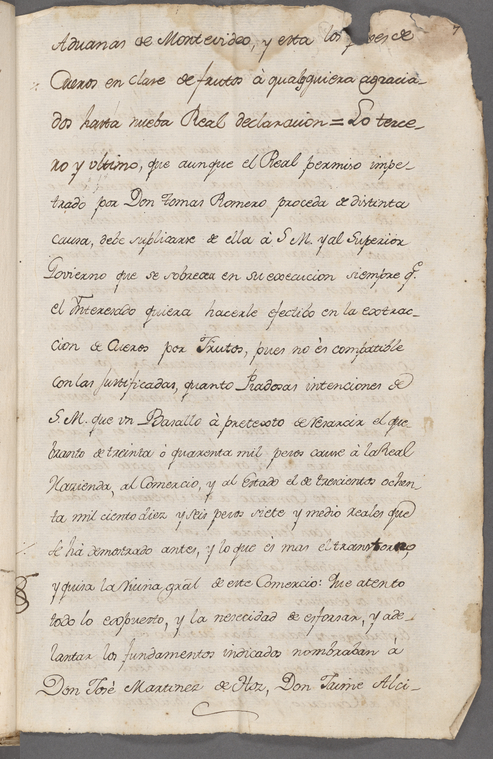 Aduanas de Montevideo, y esta los de
Cueros en clase de frutos á qualesquiera agracia-
dos hasta nueba Real declaracion = Lo terce-
ro y ultimo, que aunque el Real permiso impe-
trado por Don Tomas Romero proceda de distinta
causa, debe suplicarse de ella á S.M. y al Superior
Govierno que se sobresea en su execucion siempre q.e
el Interesado quiera hacerle efectibo en la extrac-
cion de Cueros por Frutos, pues no és compatible
con las justificadas, quanto Piadosas intenciones de
S.M. que un Basallo á pretexto de resarcir el que
branto de treinta ó quarenta mil pesos cause á la Real
Hazienda, al Comercio, y al Estado el de trescientos ochen
ta mil ciento diez y seis pesos siete y medio reales que
se há demostrado antes, y lo que és mas el transtorno,
y quisa la ruina gral de este Comercio: Que atento
todo lo expuesto, y la nesecidad de esforsar, y ade-
lantar los fundamentos indicados nombraban á
Don José Martinez de Hoz, Don Jaime Alci-